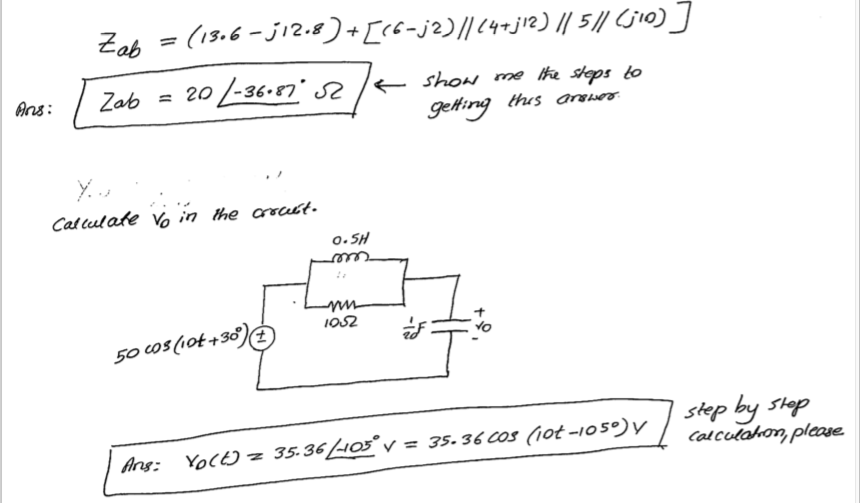 Zab = (13.6 - j12.8) + [(6-j2) || (4+j12) || 5 || (j10)]
Ans: Zab = 20 ∠-36.87° Ω ← show me the steps to
getting this answer.
Calculate Vo in the circuit.
0.5H
10Ω
50 cos(10t+30°)
+
-
1/20 F
+
Vo
-
Ans: Vo(t) = 35.36 ∠-105° V = 35.36 cos (10t-105°) V
step by step
calculation, please